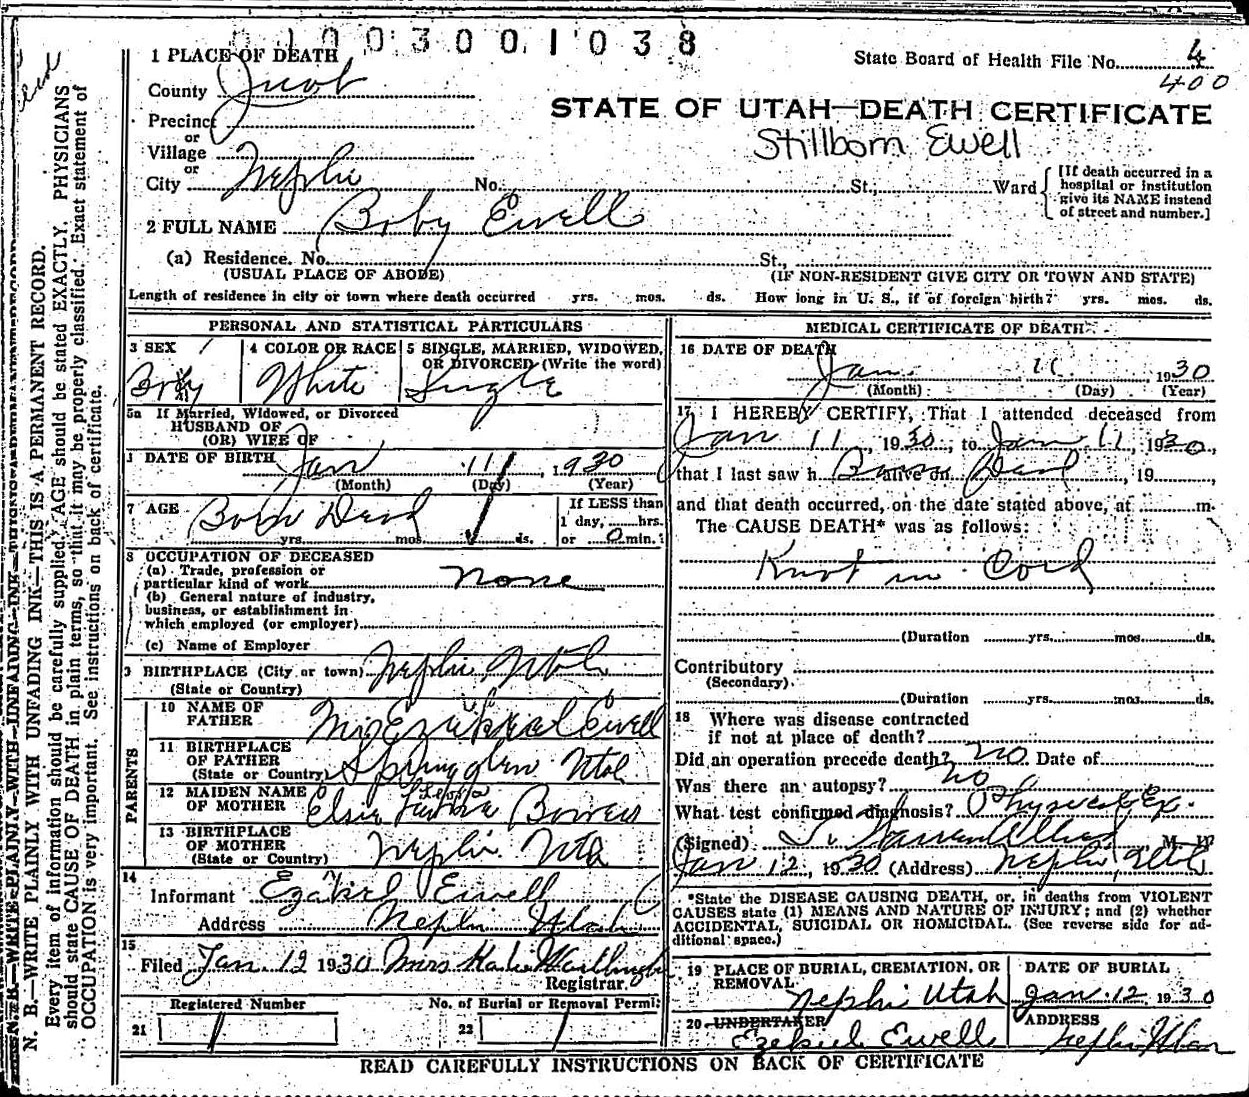 01003001038
1 PLACE OF DEATH
State Board of Health File No. 4
400
County Juab
STATE OF UTAH—DEATH CERTIFICATE
Precinct
or
Village
Stillborn Ewell
or
City Nephi No. St., Ward
[If death occurred in a
hospital or institution
give its NAME instead
of street and number.]
2 FULL NAME Boby Ewell
(a) Residence. No. St.,
(USUAL PLACE OF ABODE) (IF NON-RESIDENT GIVE CITY OR TOWN AND STATE)
Length of residence in city or town where death occurred yrs. mos. ds. How long in U. S., if of foreign birth? yrs. mos. ds.
PERSONAL AND STATISTICAL PARTICULARS
3 SEX Boy
4 COLOR OR RACE White
5 SINGLE, MARRIED, WIDOWED,
OR DIVORCED (Write the word)
Single
5a If Married, Widowed, or Divorced
HUSBAND OF
(OR) WIFE OF
DATE OF BIRTH Jan 11, 1930
(Month) (Day) (Year)
7 AGE Born Dead
yrs. mos. ds.
If LESS than
1 day, hrs.
or 0 min.
8 OCCUPATION OF DECEASED
(a) Trade, profession or
particular kind of work none
(b) General nature of industry,
business, or establishment in
which employed (or employer)
(c) Name of Employer
9 BIRTHPLACE (City or town) Nephi, Utah
(State or Country)
PARENTS
10 NAME OF
FATHER Ezekiel Ewell
11 BIRTHPLACE
OF FATHER
(State or Country) Springglen Utah
12 MAIDEN NAME
OF MOTHER Elsie Bowers
13 BIRTHPLACE
OF MOTHER
(State or Country) Nephi Utah
14
Informant Ezekiel Ewell
Address Nephi Utah
15
Filed Jan. 12 1930 Mrs
Registrar.
Registered Number No. of Burial or Removal Permit
21 1 22 1
MEDICAL CERTIFICATE OF DEATH
16 DATE OF DEATH
Jan. 11, 1930
(Month) (Day) (Year)
17 I HEREBY CERTIFY, That I attended deceased from
Jan 11, 1930, to Jan 11, 1930,
that I last saw h Born alive on Dead, 19
and that death occurred, on the date stated above, at m.
The CAUSE DEATH* was as follows:
Knot in Cord
(Duration yrs. mos. ds.
Contributory
(Secondary)
(Duration yrs. mos. ds.
18 Where was disease contracted
if not at place of death?
Did an operation precede death? no Date of
Was there an autopsy? no
What test confirmed diagnosis? Physical Ex.
(Signed) Warren Allred, M. D.
Jan 12, 1930 (Address) Nephi, Utah
*State the DISEASE CAUSING DEATH, or, in deaths from VIOLENT
CAUSES state (1) MEANS AND NATURE OF INJURY; and (2) whether
ACCIDENTAL, SUICIDAL OR HOMICIDAL. (See reverse side for ad-
ditional space.)
19 PLACE OF BURIAL, CREMATION, OR
REMOVAL
Nephi Utah
DATE OF BURIAL
Jan. 12 1930
20 UNDERTAKER
Ezekiel Ewell
ADDRESS
Nephi Utah
READ CAREFULLY INSTRUCTIONS ON BACK OF CERTIFICATE
N. B.—WRITE PLAINLY WITH UNFADING INK—THIS IS A PERMANENT RECORD.
Every item of information should be carefully supplied. AGE should be stated EXACTLY. PHYSICIANS
should state CAUSE OF DEATH in plain terms, so that it may be properly classified. Exact statement of
OCCUPATION is very important. See instructions on back of certificate.